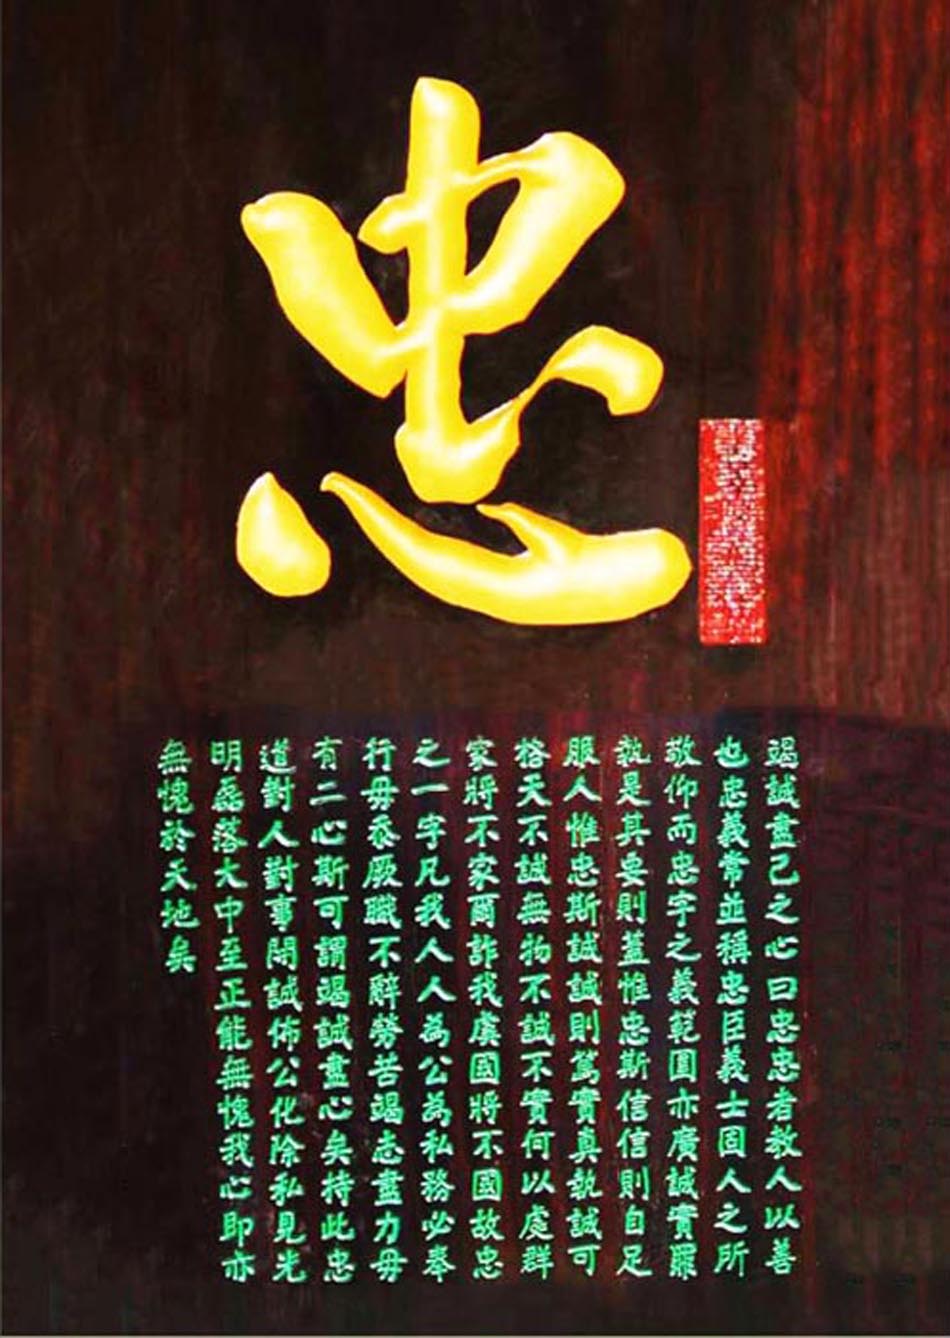 忠
竭誠盡己之心曰忠忠者教人以善
也忠義常並稱忠臣義士固人之所
敬仰而忠字之義範圍亦廣誠實罷
執是其要則蓋惟忠斯信信則自足
服人惟忠斯誠誠則篤實真執誠可
格天不誠無物不誠不實何以處群
家將不家爾詐我虞國將不國故忠
之一字凡我人人為公為私務必奉
行毋忝厥職不辭勞苦竭志盡力毋
有二心斯可謂竭誠盡心矣持此忠
道對人對事開誠佈公化除私見光
明磊落大中至正能無愧我心即亦
無愧於天地矣